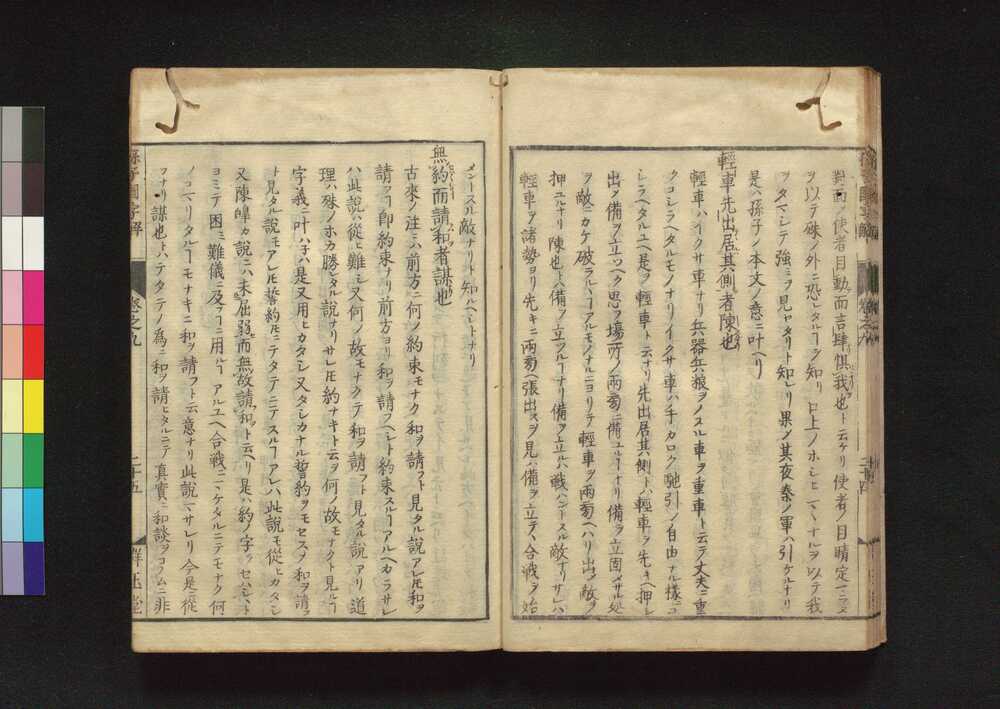 對面ノ使者目動而言肆懼我也ト云ケリ使者ノ目睛定マラズ
ヲ以テ殊ノ外ニ恐レタルヿヲ知リ口上ノホシヒマヽナルヲ以テ我
ヲタマシテ強ミヲ見セタリト知レリ果メ其夜秦ノ軍ハ引ケルナリ
是ハ孫子ノ本文ノ意ニ叶ヘリ
輕車先出居其側者陳也
輕車ハイクサ車ナリ兵器兵粮ヲノスル車ヲ重車ト云テ丈夫ニ重
クコシラヘタルモノナリイクサ車ハ手カロク馳引ノ自由ナル様ニコ
シラヘタルユヘ是ヲ輕車ト云ナリ先出居其側トハ輕車ヲ先キヘ押シ
出メ備ヲ立ツヘク思フ場所ノ兩脇ニ備ユルヿナリ備ヲ立固メサル処
ヲ敵ニカケ破ラルヽヿアルモノナルニヨリテ輕車ヲ兩脇ヘハリ出メ敵ヲ
押ユルナリ陳也トハ備ヲ立ツルヿナリ備ヲ立ルハ戰ハントスル敵ナリサレハ
輕車ヲ諸勢ヨリ先キニ兩脇ヘ張出スヲ見ハ備ヲ立テヽ合戰ヲ始
メントスル敵ナリト知ルヘシトナリ
無約而請和者謀也
古來ノ注ニハ前方ニ何ノ約束モナク和ヲ請フト見タル說アレ𪜈和ヲ
請フハ即約束ナリ前方ヨリ和ヲ請フヘシト約束スルヿアルヘカラサレ
ハ此說ハ從ヒ難シ又何ノ故モナクテ和ヲ請フト見タル說アリ道
理ハ殊ノホカ勝レタル說ナリサレ𪜈約ナキト云ヲ何ノ故モナクト見ルヿ
字義ニ叶ハ子ハ是又用ヒカタシ又タシカナル誓約ヲモセスメ和ヲ請フ
ト見タル說モアレ𪜈誓約モニテタテニテスルヿアレハ此說モ從ヒカタシ
又陳皥カ說ニハ未屈弱而無故請和ト云ヘリ是ハ約ノ字ヲセハシト
ヨミテ困ミ難儀ニ及フヿニ用ルヿアルユヘ合戰ニマケタルニテモナク何
ノコマリタルヿモナキニ和ヲ請フト云意ナリ此說マサレリ今是ニ從
フナリ謀也トハテタテノ爲ニ和ヲ請ヒタルニテ真實ニ和談ヲコノムニ非
卷之九
二十五